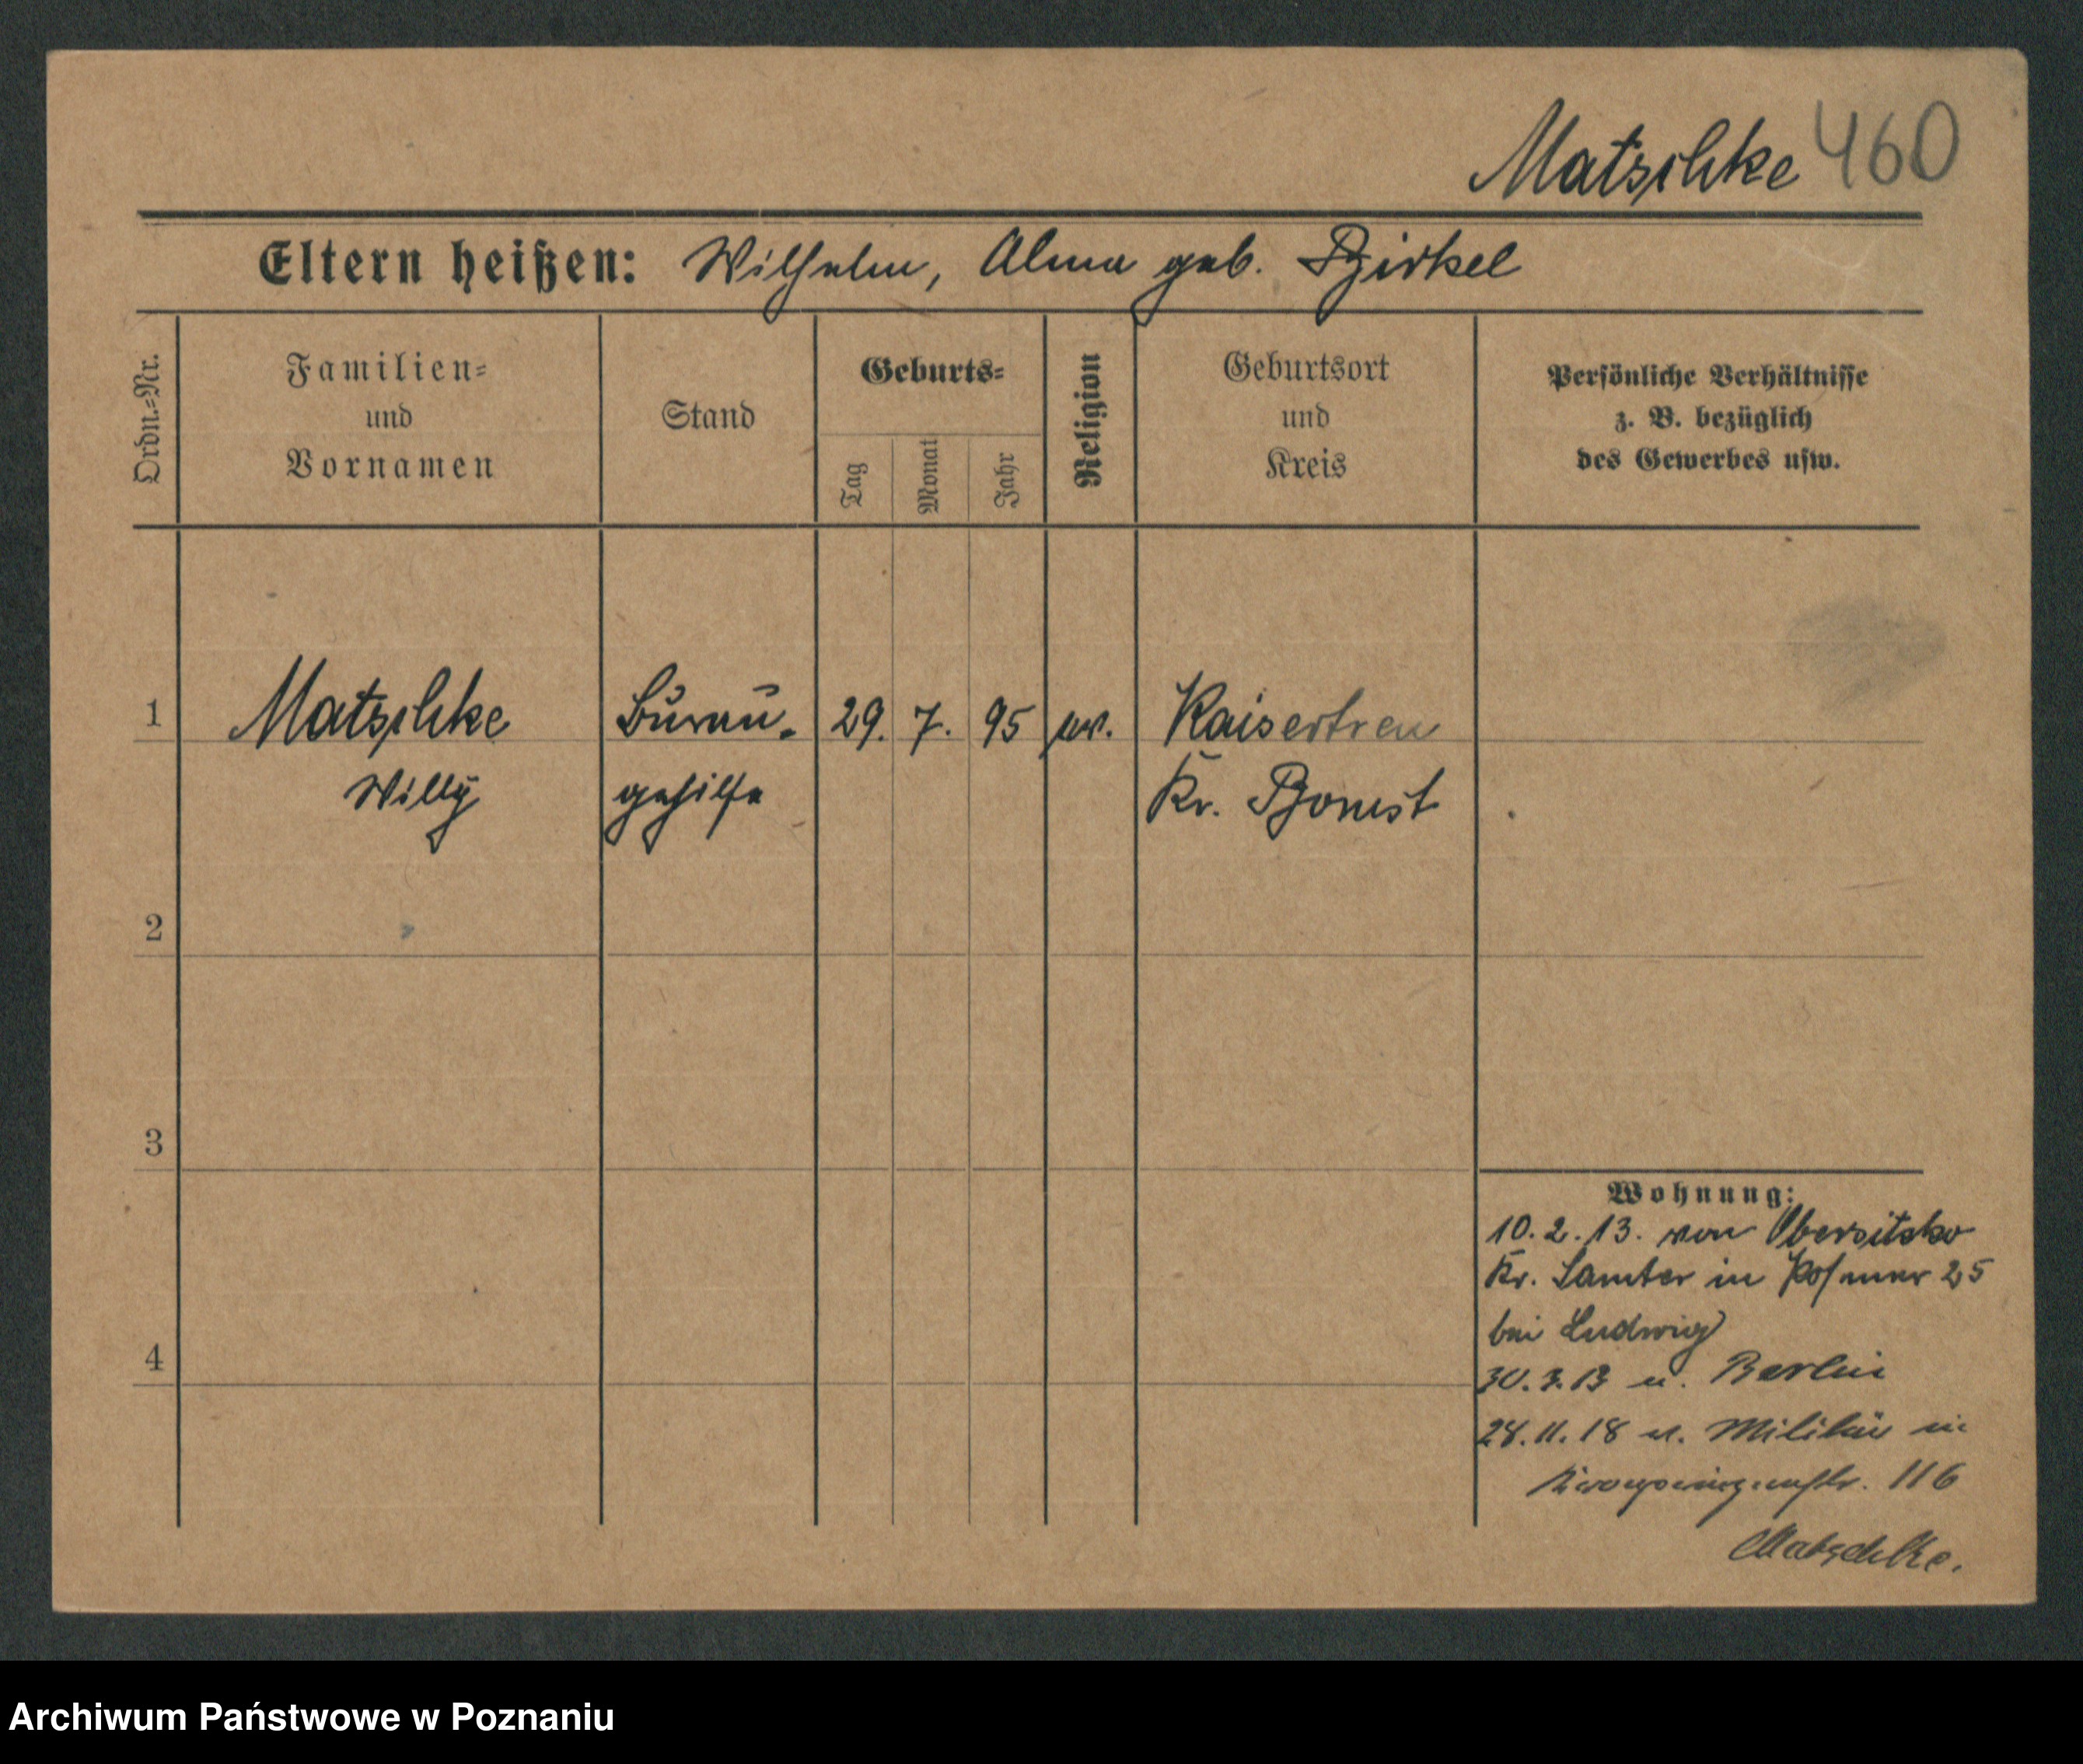 Matschke 460
Eltern heißen: Wilhelm, Alma geb. Birkel
Ordn.=Nr.
Familien=
und
Vornamen
Stand
Geburts=
Tag
Monat
Jahr
Religion
Geburtsort
und
Kreis
Persönliche Verhältnisse
z. B. bezüglich
des Gewerbes usw.
1 Matschke Büraü- 29. 7. 95 ev. Kaisertreu
Willy gehilfe Kr. Bomst
2
3
4
Wohnung:
10.2.13. von Obersitzko
Kr. Samter in Posener 25
bei Ludwig
30.3.13 n. Berlin
28.11.18 v. Militär in
Kronprinzenstr. 116
Matschke.
Archiwum Państwowe w Poznaniu